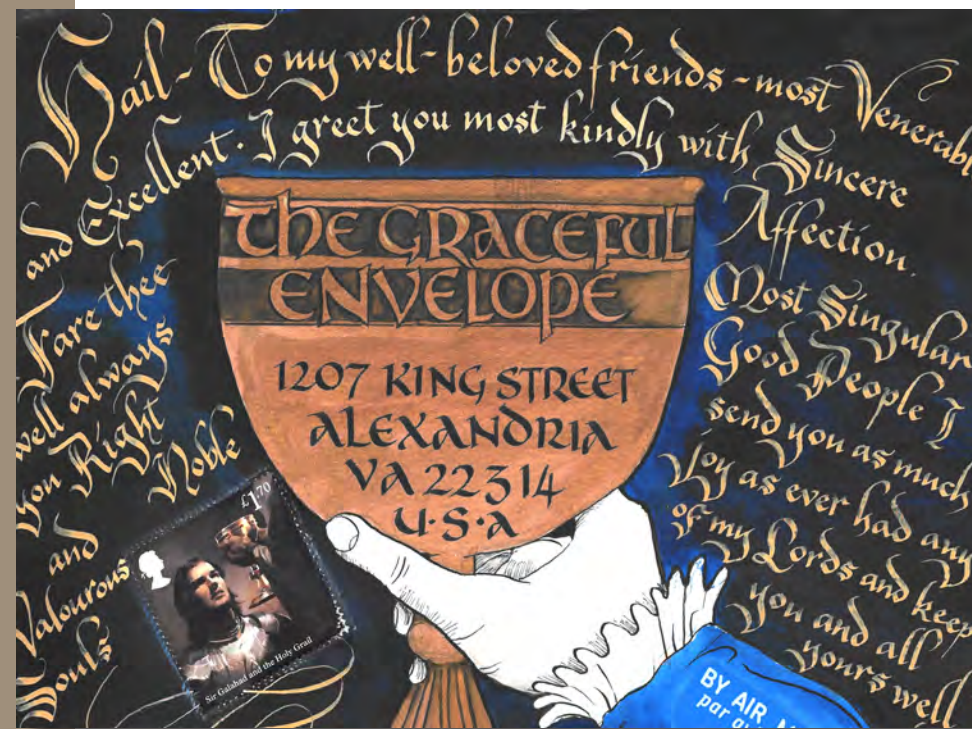 Hail - To my well-beloved friends - most Venerabl
and Excellent. I greet you most kindly with Sincere
Affection.
Most Singular
Good People I
send you as much
Joy as ever had any
of my Lords and keep
you and all
yours well
Fare thee
well always
you Right
Noble
and
Valourous
Souls
THE GRACEFUL
ENVELOPE
1207 KING STREET
ALEXANDRIA
VA 22314
U·S·A
£1.70
Sir Galahad and the Holy Grail
BY AIR
par